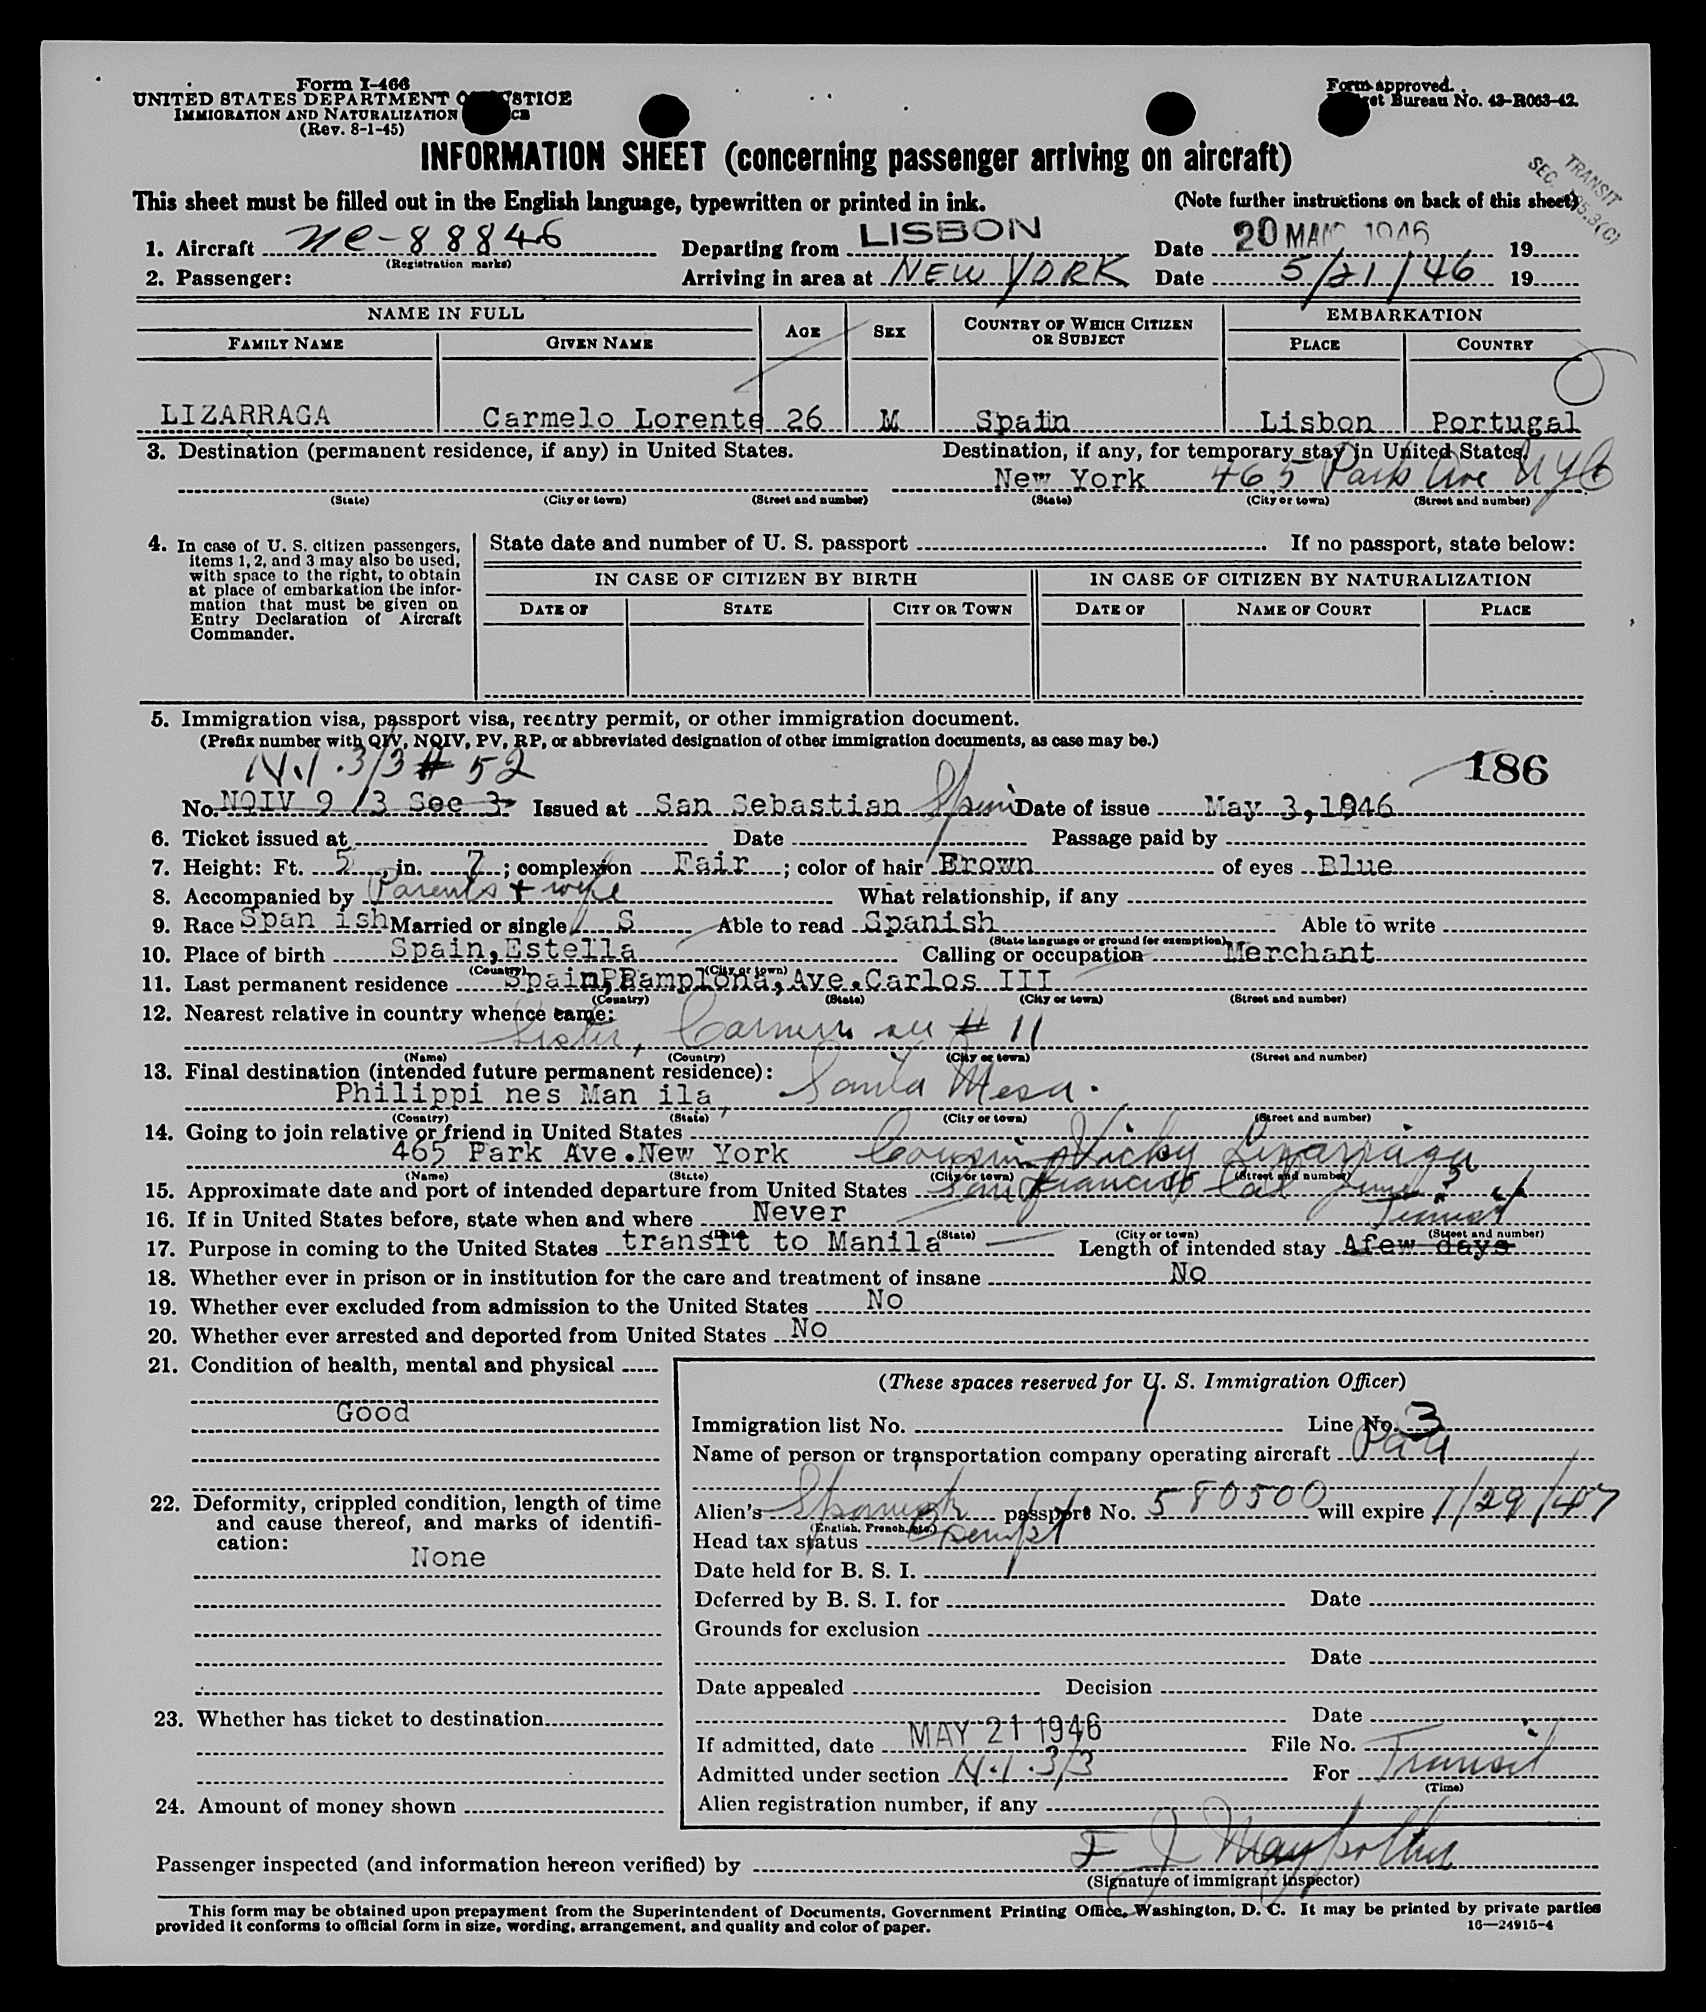 Form I-466
UNITED STATES DEPARTMENT JUSTICE
IMMIGRATION AND NATURALIZATION
(Rev. 8-1-45)
Form approved.
Budget Bureau No. 43-R063-42.
INFORMATION SHEET (concerning passenger arriving on aircraft)
TRANSIT
SEC.
This sheet must be filled out in the English language, typewritten or printed in ink. (Note further instructions on back of this sheet)
1. Aircraft NC-88846 Departing from LISBON Date 20 MAI 1946 19
(Registration marks)
2. Passenger: Arriving in area at NEW YORK Date 5/21/46 19
NAME IN FULL AGE SEX COUNTRY OF WHICH CITIZEN OR SUBJECT EMBARKATION
FAMILY NAME GIVEN NAME PLACE COUNTRY
LIZARRAGA Carmelo Lorente 26 M Spain Lisbon Portugal
3. Destination (permanent residence, if any) in United States. Destination, if any, for temporary stay in United States.
New York 465 Park Ave NYC
(State) (City or town) (Street and number) (State) (City or town) (Street and number)
4. In case of U. S. citizen passengers, items 1, 2, and 3 may also be used, with space to the right, to obtain at place of embarkation the information that must be given on Entry Declaration of Aircraft Commander.
State date and number of U. S. passport If no passport, state below:
IN CASE OF CITIZEN BY BIRTH IN CASE OF CITIZEN BY NATURALIZATION
DATE OF STATE CITY OR TOWN DATE OF NAME OF COURT PLACE
5. Immigration visa, passport visa, reentry permit, or other immigration document.
(Prefix number with QIV, NQIV, PV, RP, or abbreviated designation of other immigration documents, as case may be.)
N.I. 3/3 # 52
186
No. NQIV 9 /3 Sec 3 Issued at San Sebastian Spain Date of issue May 3, 1946
6. Ticket issued at Date Passage paid by
7. Height: Ft. 5, in. 7; complexion Fair; color of hair Brown of eyes Blue
8. Accompanied by Parents + wife What relationship, if any
9. Race Span ish Married or single S Able to read Spanish Able to write
(State language or ground for exemption)
10. Place of birth Spain, Estella Calling or occupation Merchant
(Country) (City or town)
11. Last permanent residence Spain, Pamplona, Ave. Carlos III
(Country) (State) (City or town) (Street and number)
12. Nearest relative in country whence came:
Sister, Carmen # 11
(Name) (Country) (City or town) (Street and number)
13. Final destination (intended future permanent residence):
Philippi nes Man ila, Santa Mesa.
(Country) (State) (City or town) (Street and number)
14. Going to join relative or friend in United States
465 Park Ave. New York Cousin Vicky Lizarraga
(Name) (State) (City or town) (Street and number)
15. Approximate date and port of intended departure from United States San Francisco Cal June 3
16. If in United States before, state when and where Never
(Date) (State) (City or town) (Street and number)
Transit
17. Purpose in coming to the United States transit to Manila Length of intended stay Afew days
18. Whether ever in prison or in institution for the care and treatment of insane No
19. Whether ever excluded from admission to the United States No
20. Whether ever arrested and deported from United States No
21. Condition of health, mental and physical
Good
22. Deformity, crippled condition, length of time and cause thereof, and marks of identification:
None
23. Whether has ticket to destination
24. Amount of money shown
(These spaces reserved for U. S. Immigration Officer)
Immigration list No. 1 Line No. 3
Name of person or transportation company operating aircraft PAA
Alien's Spanish passport No. 580500 will expire 1/29/47
(English, French, etc.)
Head tax status Exempt
Date held for B. S. I.
Deferred by B. S. I. for Date
Grounds for exclusion
Date
Date appealed Decision
Date
If admitted, date MAY 21 1946 File No.
Admitted under section N.I. 3/3 For Transit
(Time)
Alien registration number, if any
Passenger inspected (and information hereon verified) by
(Signature of immigrant inspector)
This form may be obtained upon prepayment from the Superintendent of Documents, Government Printing Office, Washington, D. C. It may be printed by private parties
provided it conforms to official form in size, wording, arrangement, and quality and color of paper. 16—24915-4